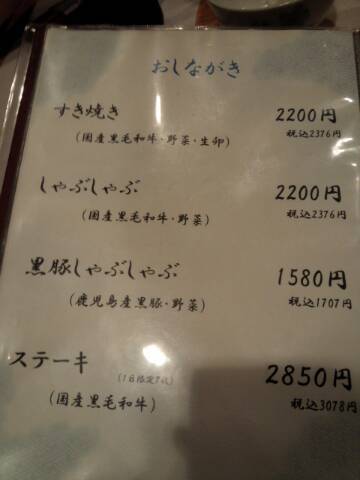 おしながき
すき焼き 2200円
(国産黒毛和牛・野菜・生卵) 税込2376円
しゃぶしゃぶ 2200円
(国産黒毛和牛・野菜) 税込2376円
黒豚しゃぶしゃぶ 1580円
(鹿児島産黒豚・野菜) 税込1707円
ステーキ 2850円
(国産黒毛和牛) 税込3078円